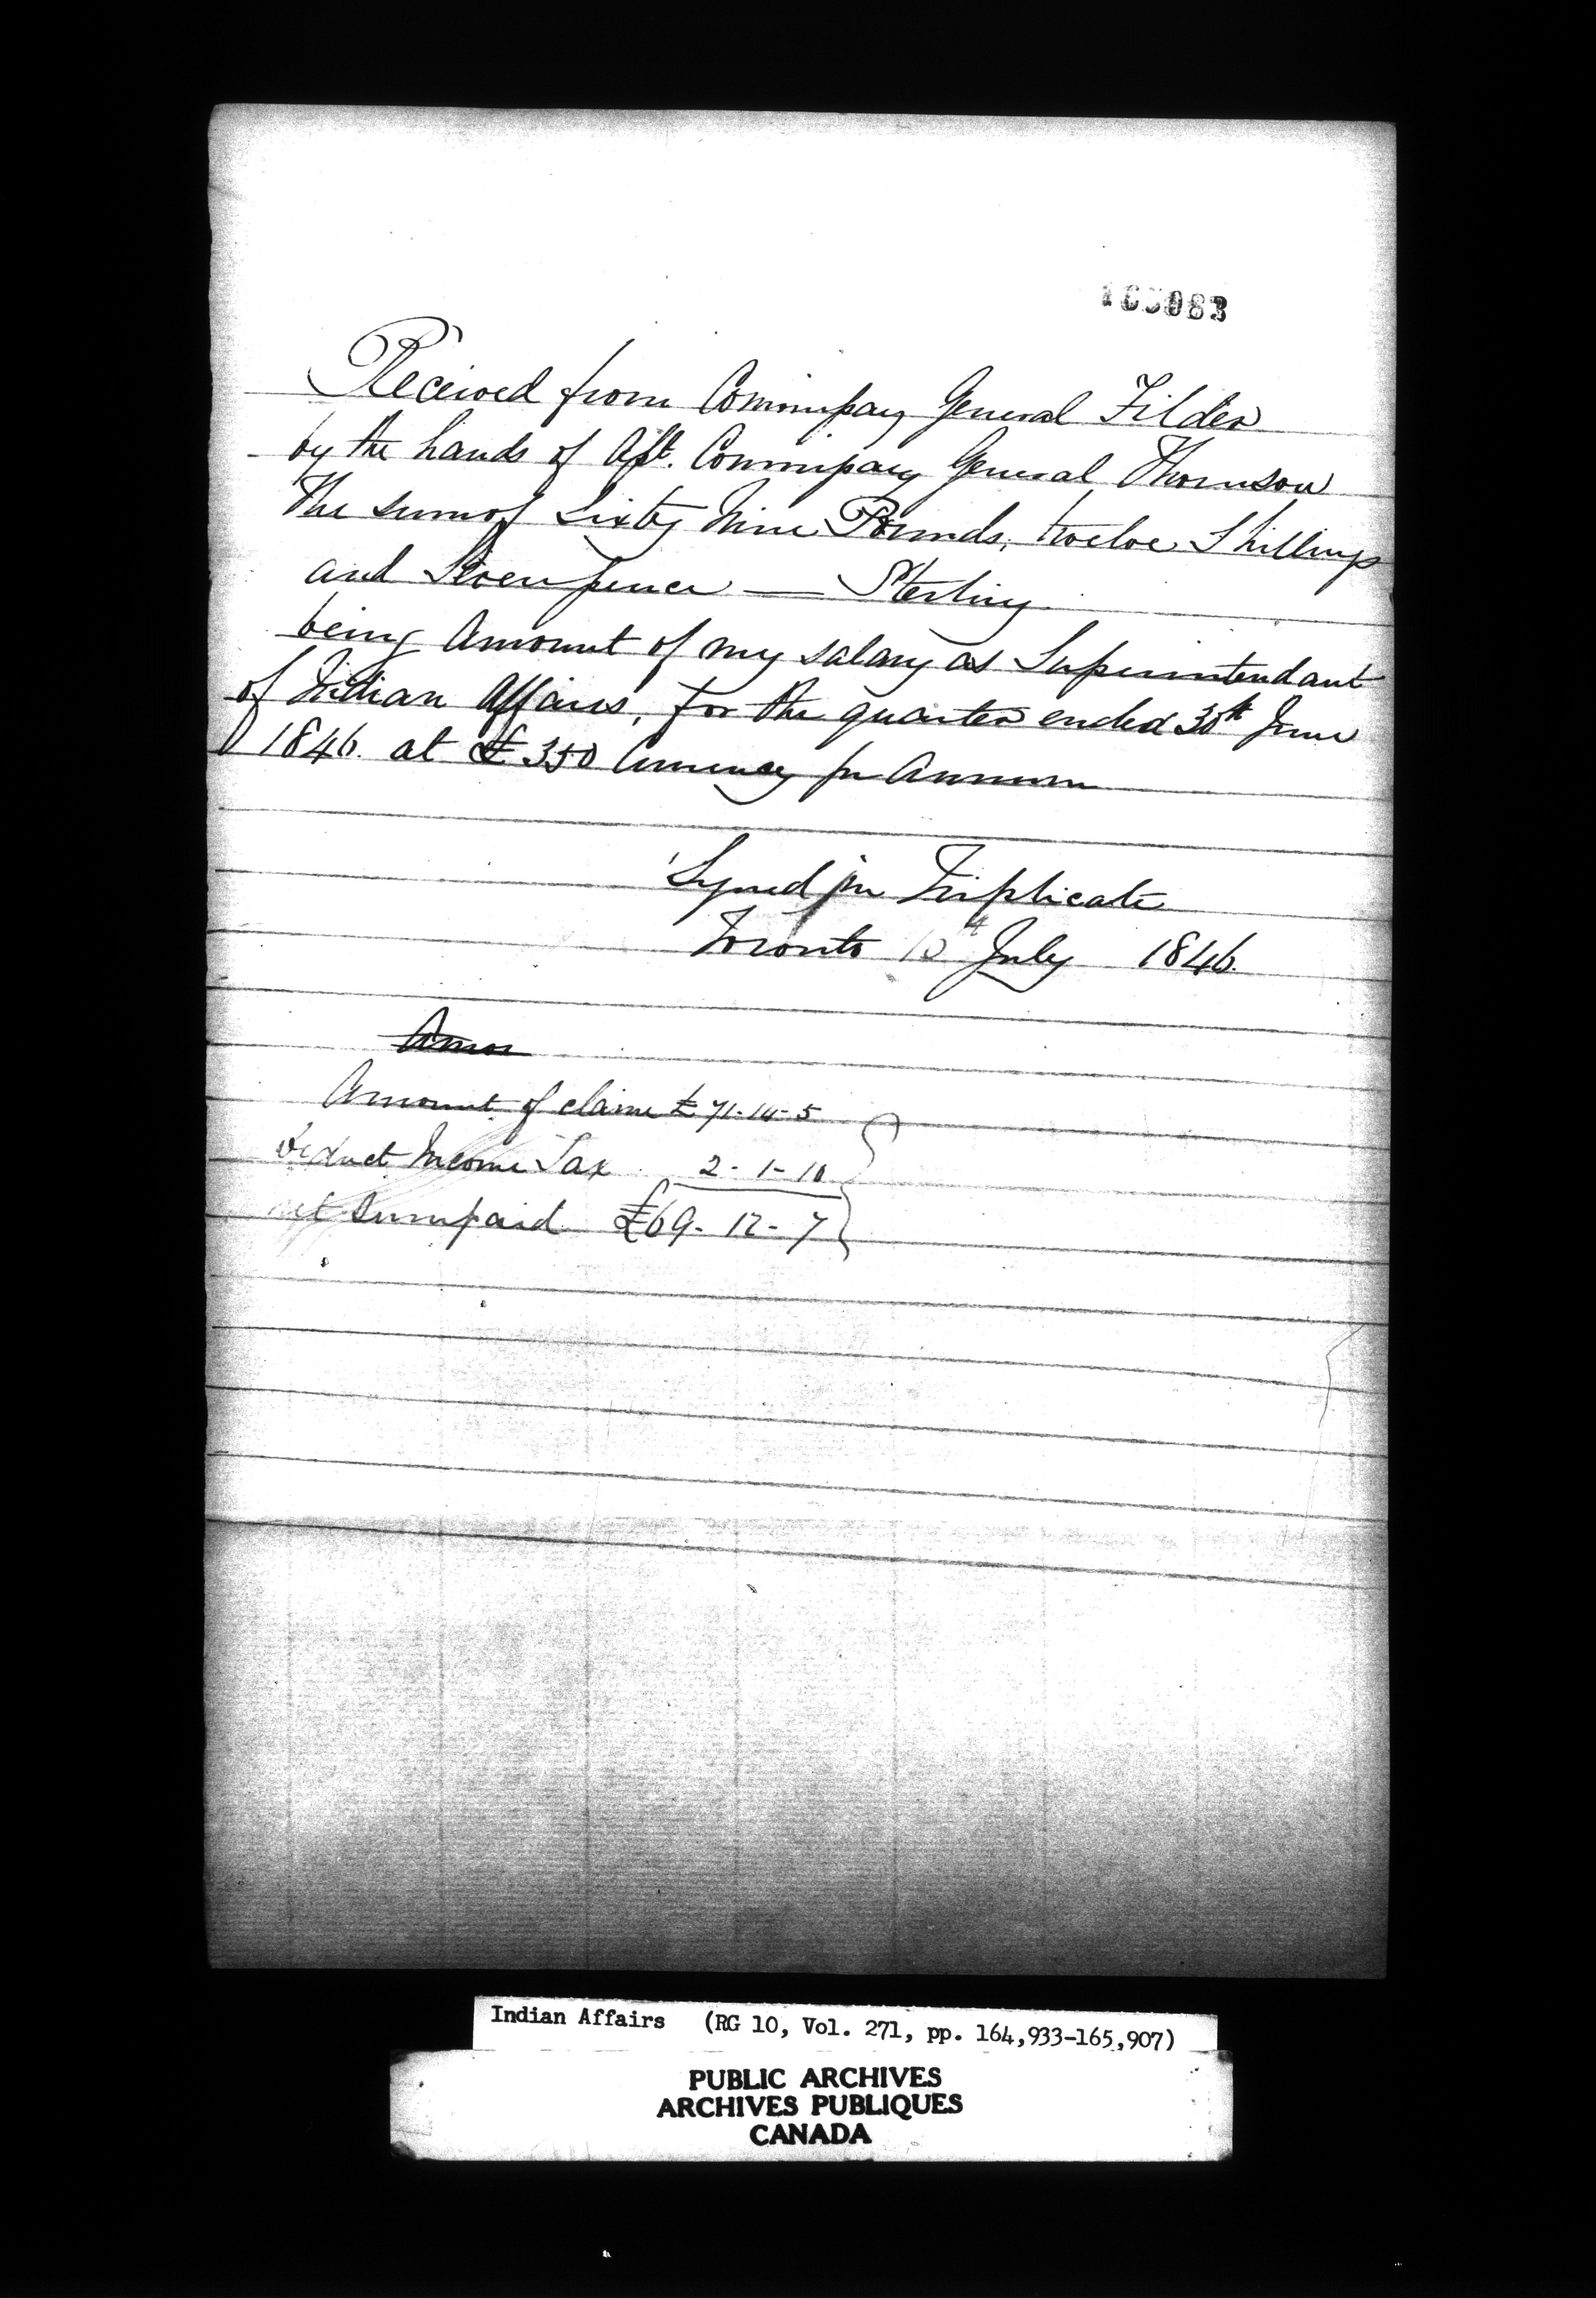 165083
Received from Commissary General Filder
by the hands of Asst. Commissary General Thomson
The sum of Sixty Nine Pounds, twelve Shillings
and Seven pence — Sterling
being Amount of my salary as Superintendant
of Indian Affairs, for the quarter ended 30th June
1846. at £350 Currency pr Annum
Signed in Triplicate
Toronto 10th July 1846.
Amou
Amount of claim £71-14-5
Deduct Income Tax 2-1-10
net Sum paid £69-12-7
Indian Affairs (RG 10, Vol. 271, pp. 164,933-165,907)
PUBLIC ARCHIVES
ARCHIVES PUBLIQUES
CANADA